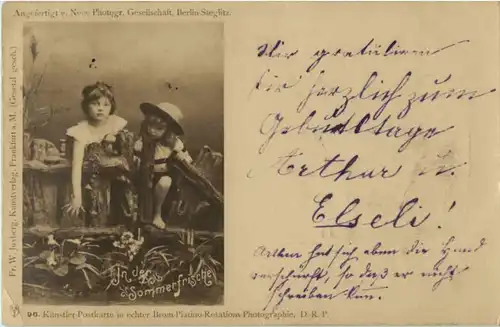 Angefertigt v. Neue Photogr. Gesellschaft, Berlin-Steglitz.
Fr. W. Kunstverlag, Frankfurt a. M. (Gesetzl. gesch.)
Wir gratuliren
Dir herzlich zum
Geburtstage
Arthur u.
Elseli!
Arthur hat sich eben die Hand
so daß er nicht
schreiben kan.
In der
Sommerfrische
96. Künstler-Postkarte in echter Brom-Platino-Rotations-Photographie, D. R. P.